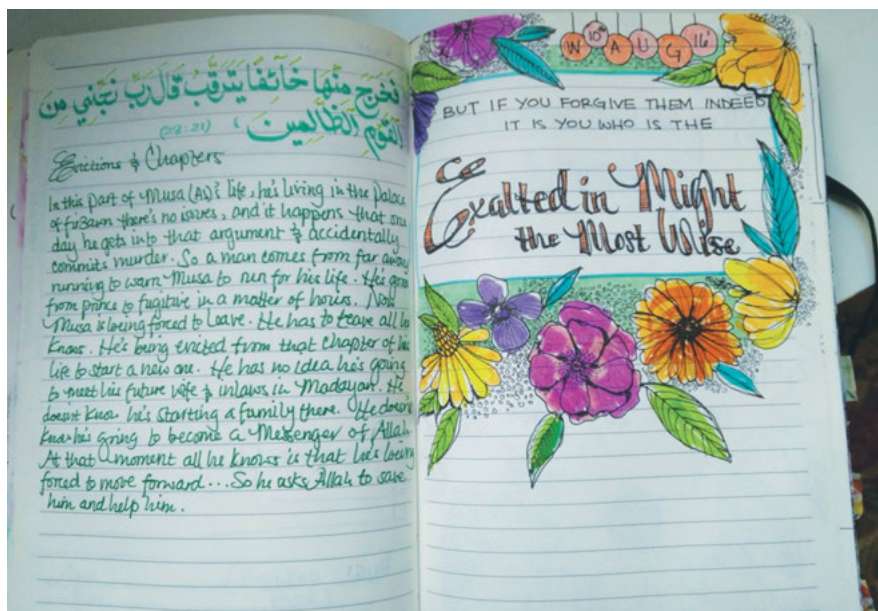 فَخَرَجَ مِنْهَا خَائِفًا يَتَرَقَّبُ قَالَ رَبِّ نَجِّنِي مِنَ
الْقَوْمِ الظَّالِمِينَ
(28:21)
Evictions & Chapters
In this part of Musa (As)'s life, he's living in the palace
of fir3awn there's no issues, and it happens that one
day he gets into that argument & accidentally
commits murder. So a man comes from far away
running to warn Musa to run for his life. He goes
from prince to fugitive in a matter of hours. Now
Musa is being forced to leave. He has to leave all he
knows. He's being evicted from that chapter of his
life to start a new one. He has no idea he's going
to meet his future wife & inlaws in Madayan. He
doesnt know he's starting a family there. He doesn't
know he's going to become a Messenger of Allah
At that moment all he knows is that he's being
forced to move forward... So he asks Allah to save
him and help him.
W 10th A U G 16'
BUT IF YOU FORGIVE THEM INDEED
IT IS YOU WHO IS THE
Exalted in Might
the Most Wise